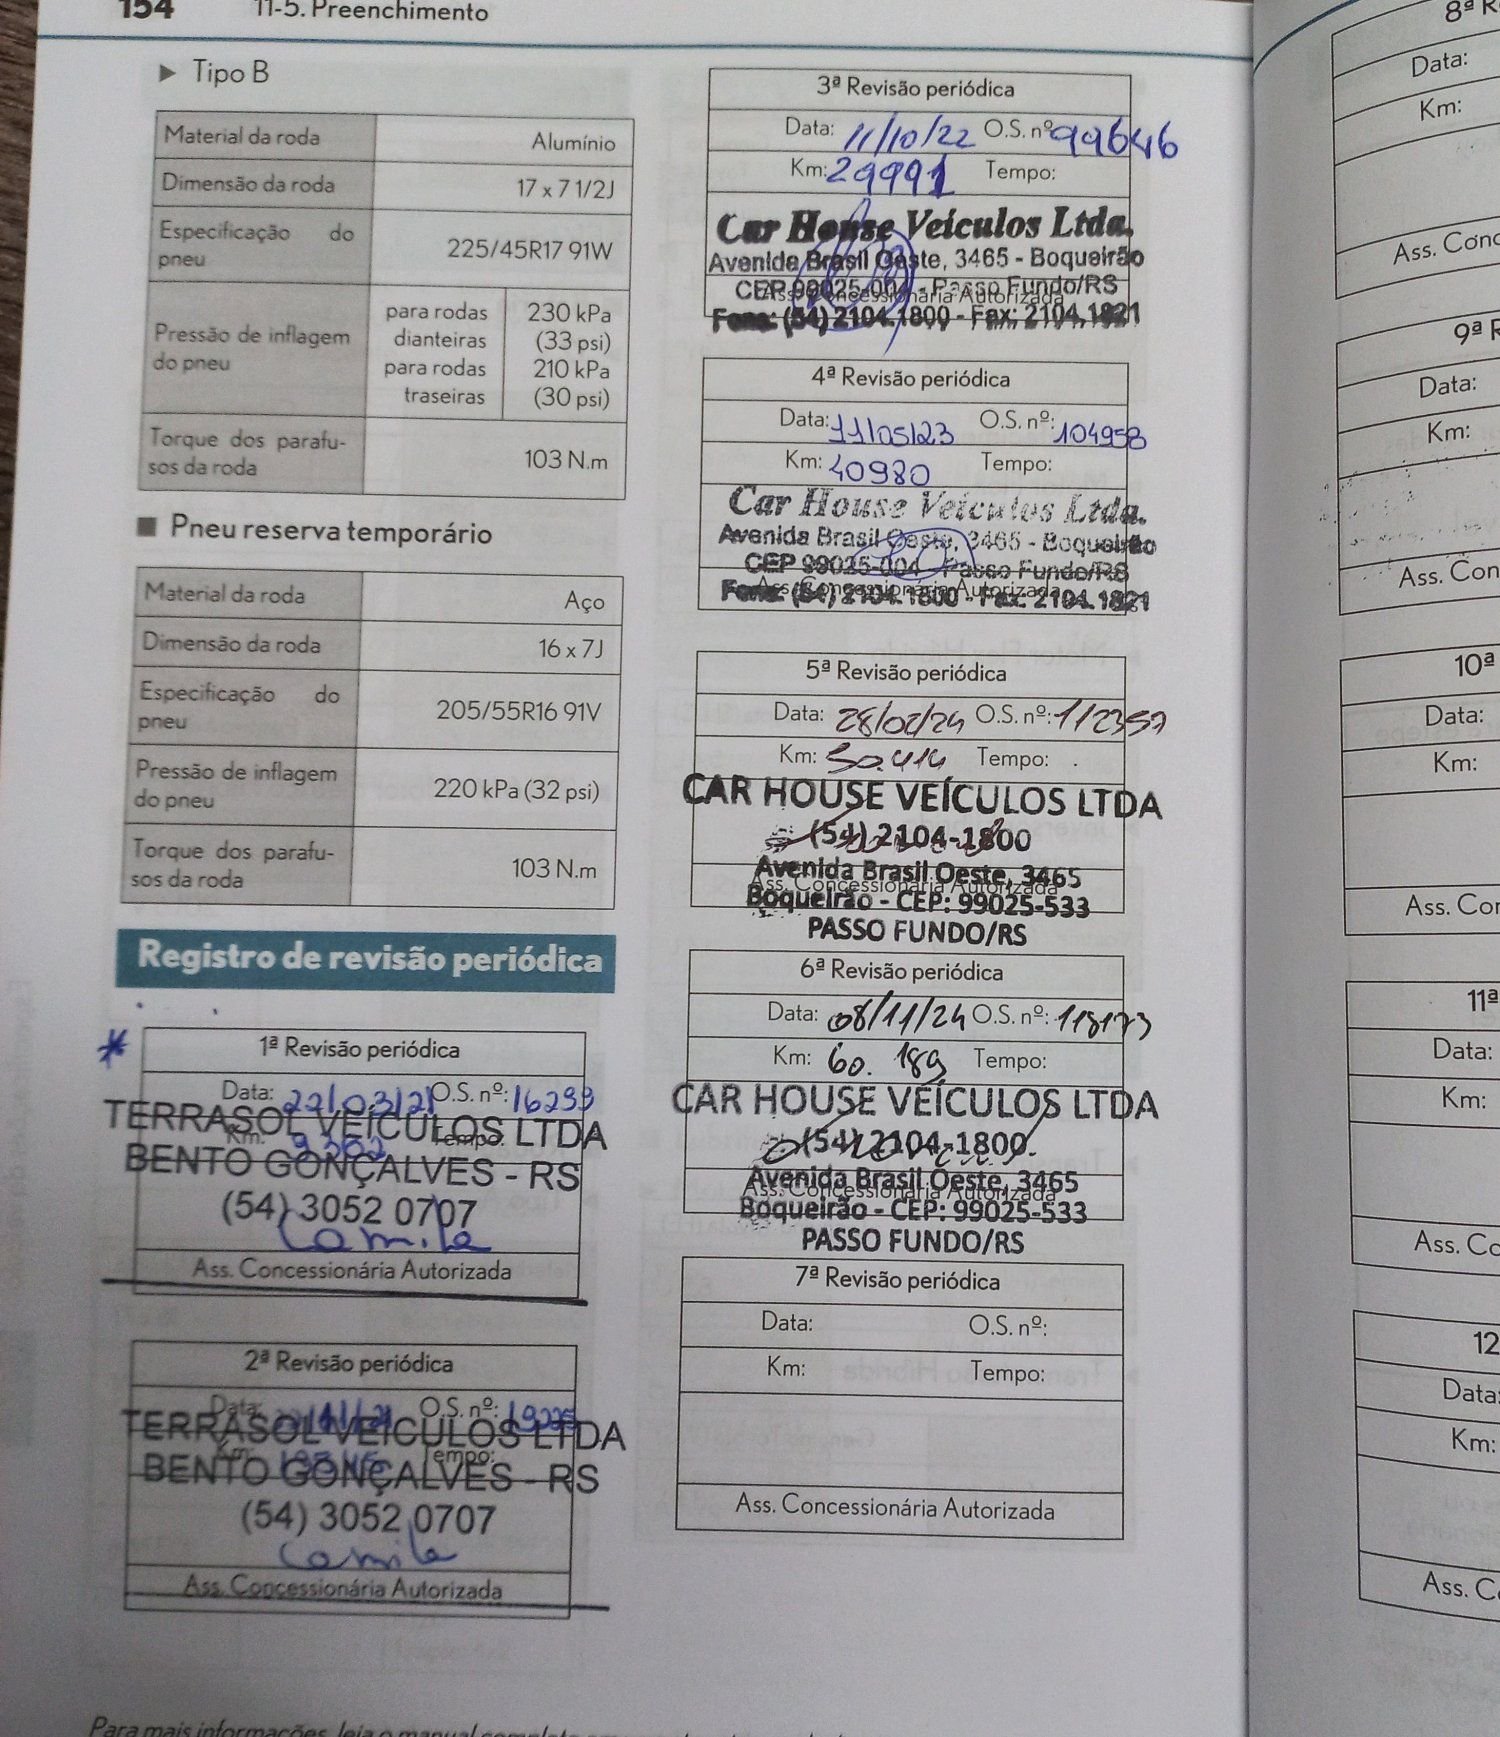 154 11-5. Preenchimento
▶ Tipo B
Material da roda Alumínio
Dimensão da roda 17 x 7 1/2J
Especificação do
pneu 225/45R17 91W
Pressão de inflagem
do pneu
para rodas
dianteiras
230 kPa
(33 psi)
para rodas
traseiras
210 kPa
(30 psi)
Torque dos parafu-
sos da roda 103 N.m
■ Pneu reserva temporário
Material da roda Aço
Dimensão da roda 16 x 7J
Especificação do
pneu 205/55R16 91V
Pressão de inflagem
do pneu 220 kPa (32 psi)
Torque dos parafu-
sos da roda 103 N.m
Registro de revisão periódica
1ª Revisão periódica
Data: 22/03/21 O.S. nº: 16299
Km: Tempo:
TERRASOL VEÍCULOS LTDA
BENTO GONÇALVES - RS
(54) 3052 0707
Camila
Ass. Concessionária Autorizada
2ª Revisão periódica
Data: O.S. nº:
Km: Tempo:
TERRASOL VEÍCULOS LTDA
BENTO GONÇALVES - RS
(54) 3052 0707
Camila
Ass. Concessionária Autorizada
3ª Revisão periódica
Data: 11/10/22 O.S. nº 99646
Km: 29991 Tempo:
Car House Veículos Ltda.
Avenida Brasil Oeste, 3465 - Boqueirão
CEP 99025-004 - Passo Fundo/RS
Ass. Concessionária Autorizada
Fone: (54) 2104.1800 - Fax: 2104.1821
4ª Revisão periódica
Data: 11/05/23 O.S. nº: 104958
Km: 40980 Tempo:
Car House Veículos Ltda.
Avenida Brasil Oeste, 3465 - Boqueirão
CEP 99025-004 - Passo Fundo/RS
Ass. Concessionária Autorizada
Fone: (54) 2104.1800 - Fax: 2104.1821
5ª Revisão periódica
Data: 28/02/24 O.S. nº: 112357
Km: 50.414 Tempo:
CAR HOUSE VEÍCULOS LTDA
(54) 2104-1800
Avenida Brasil Oeste, 3465
Ass. Concessionária Autorizada
Boqueirão - CEP: 99025-533
PASSO FUNDO/RS
6ª Revisão periódica
Data: 08/11/24 O.S. nº: 118173
Km: 60.189 Tempo:
CAR HOUSE VEÍCULOS LTDA
(54) 2104-1800
Avenida Brasil Oeste, 3465
Ass. Concessionária Autorizada
Boqueirão - CEP: 99025-533
PASSO FUNDO/RS
7ª Revisão periódica
Data: O.S. nº:
Km: Tempo:
Ass. Concessionária Autorizada
8ª R
Data:
Km:
Ass. Conc
9ª R
Data:
Km:
Ass. Con
10ª
Data:
Km:
Ass. Cor
11ª
Data:
Km:
Ass. Co
12
Data:
Km:
Ass. C
Para mais informações, leia o manual completo